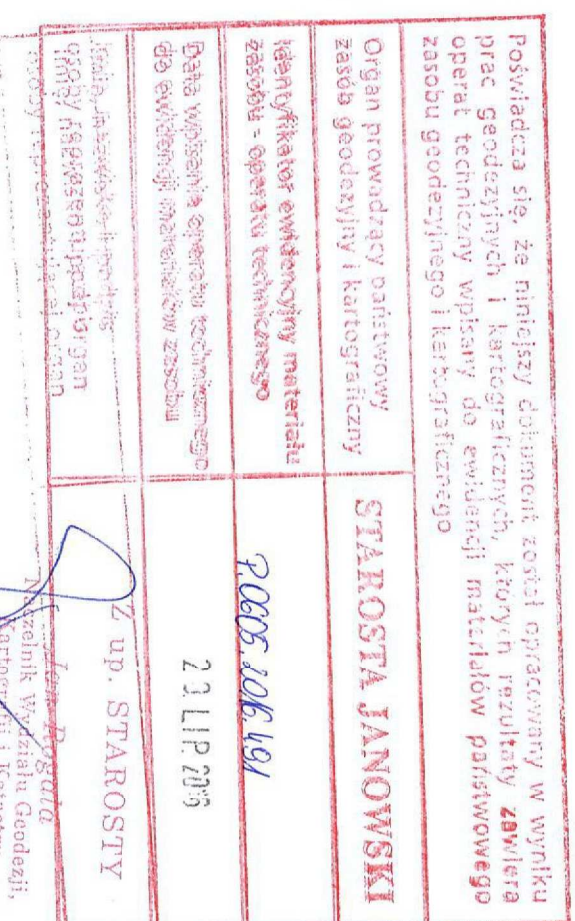 Poświadcza się, że niniejszy dokument został opracowany w wyniku
prac geodezyjnych i kartograficznych, których rezultaty zawiera
operat techniczny wpisany do ewidencji materiałów państwowego
zasobu geodezyjnego i kartograficznego
Organ prowadzący państwowy
zasób geodezyjny i kartograficzny
STAROSTA JANOWSKI
Identyfikator ewidencyjny materiału
zasobu - operatu technicznego
P.0605.2016.491
Data wpisania operatu technicznego
do ewidencji materiałów zasobu
2 LIP. 2016
Imię, nazwisko i podpis
osoby
organ
Z up. STAROSTY
Rogala
Naczelnik Wydziału Geodezji,
Kartografii i Katastru